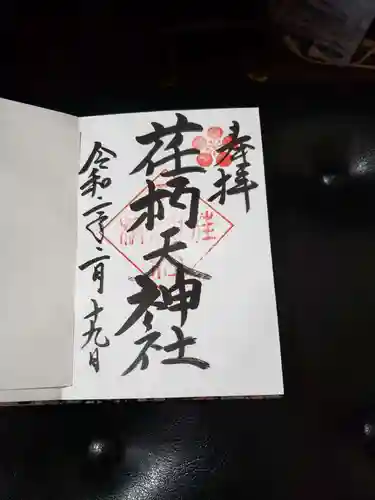 奉拝
荏柄天神社
令和二年二月十九日